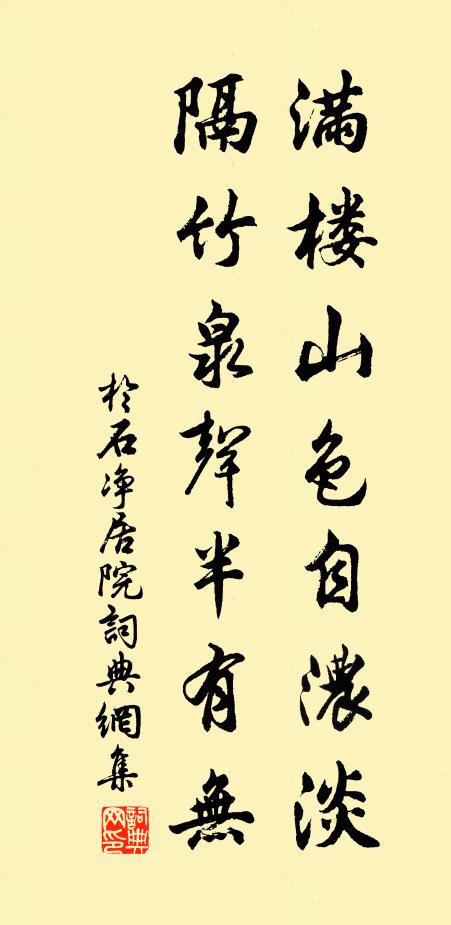 满楼山色自濃淡
隔竹泉聲半有無
於石净居院詞典網集
詞典網印